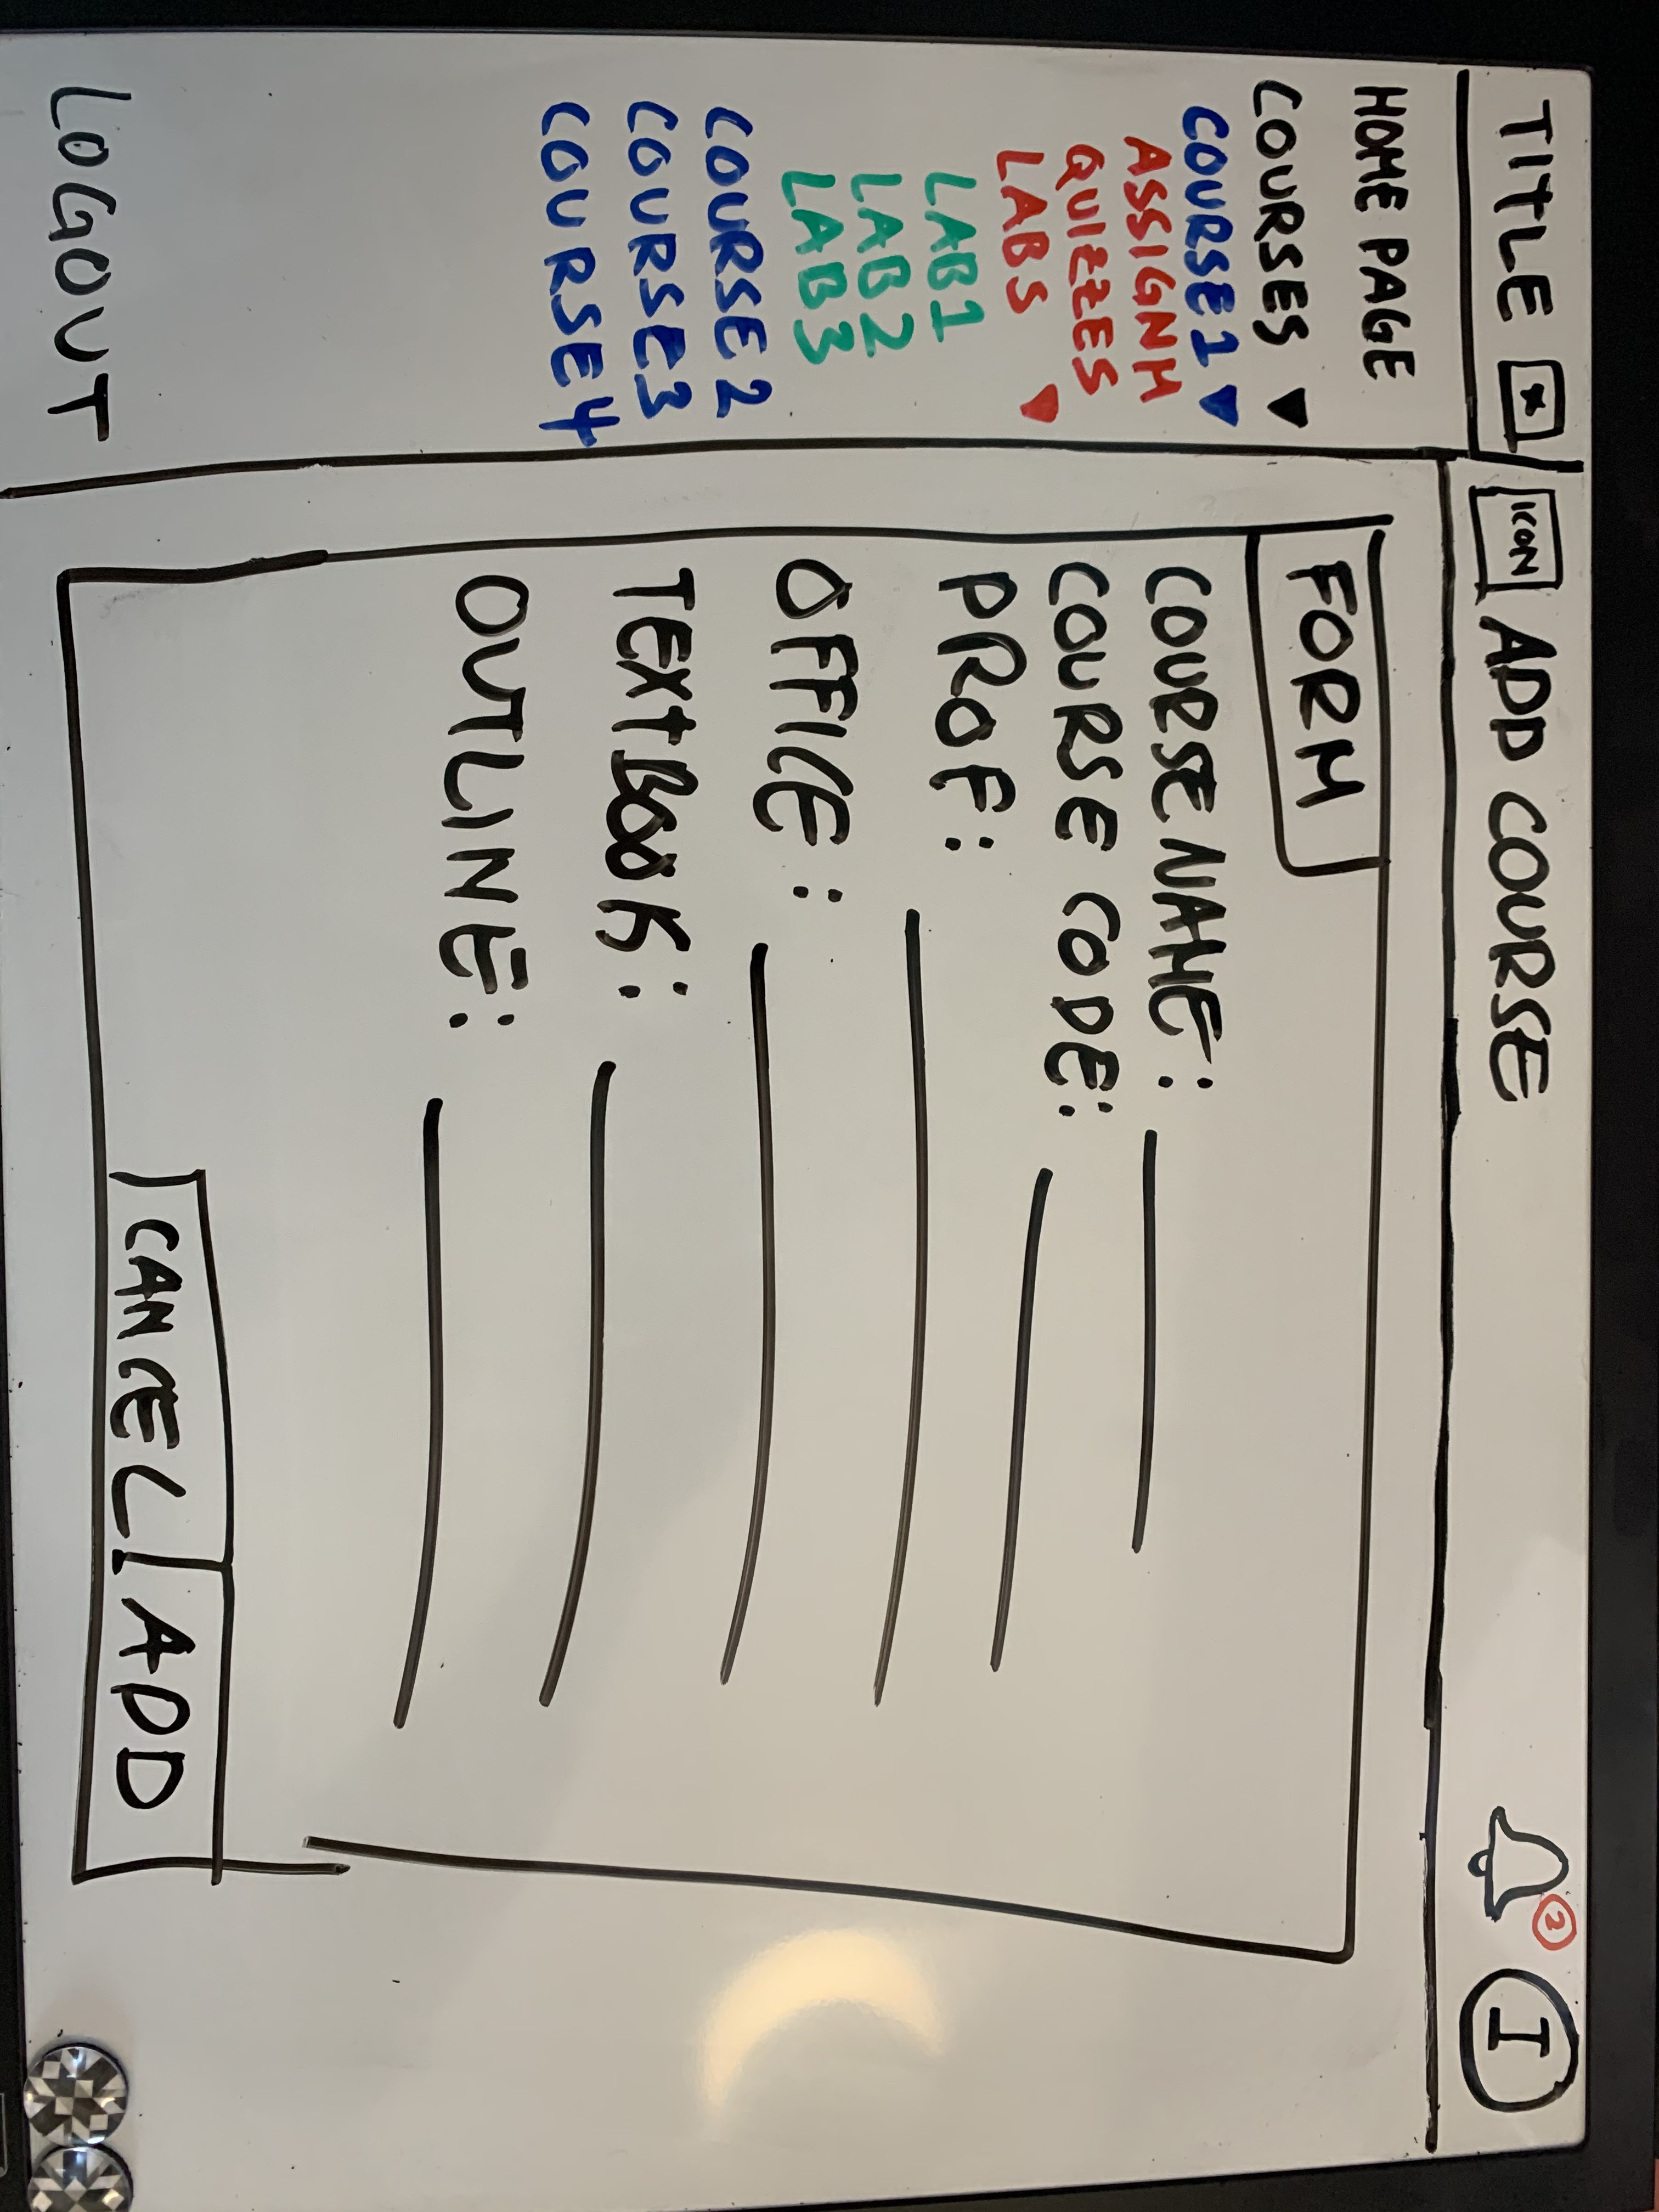 TITLE x
ICON ADD COURSE
2
I
HOME PAGE
COURSES ▼
COURSE 1 ▼
ASSIGNM
QUIZZES
LABS ▼
LAB1
LAB2
LAB3
COURSE 2
COURSE3
COURSE4
LOGOUT
FORM
COURSE NAME:
COURSE CODE:
PROF:
OFFICE:
TEXTBOOK:
OUTLINE:
CANCEL ADD